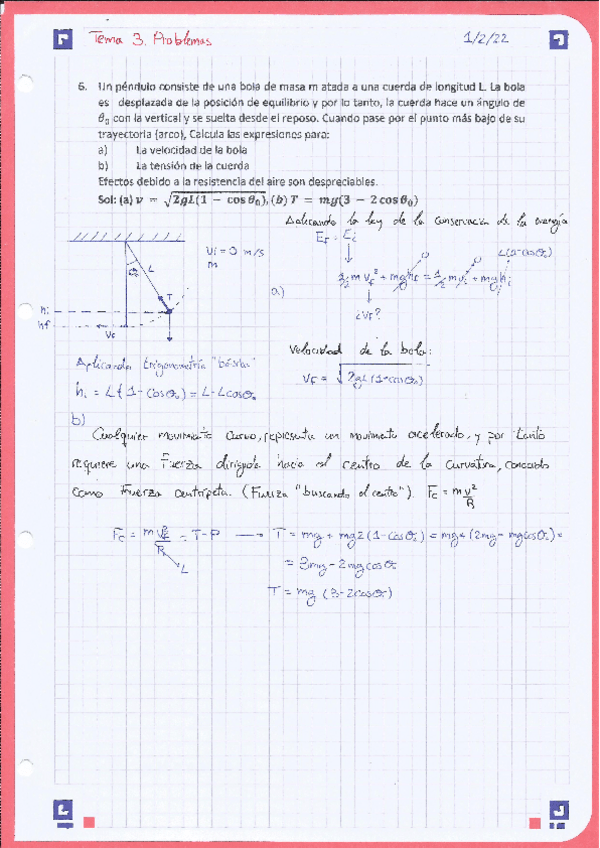 Tema 3. Problemas
1/2/22
6. Un péndulo consiste de una bola de masa m atada a una cuerda de longitud L. La bola
es desplazada de la posición de equilibrio y por lo tanto, la cuerda hace un ángulo de
θ₀ con la vertical y se suelta desde el reposo. Cuando pase por el punto más bajo de su
trayectoria (arco), Calcula las expresiones para:
a) La velocidad de la bola
b) La tensión de la cuerda
Efectos debido a la resistencia del aire son despreciables.
Sol: (a) v = √2gL(1 − cos θ₀), (b) T = mg(3 − 2 cos θ₀)
Aplicando la ley de la conservación de la energía
EF = Ei
Vi = 0 m/s
m
θ₀
L
T
hi
hf
VF
a)
½ m VF² + mghf = ½ m Vi² + mghi
0
0
L(1-cosθ₀)
¿VF?
Velocidad de la bola:
VF = √2gL(1-cosθ₀)
Aplicando trigonometría "básica"
hi = L(1-cosθ₀) = L-Lcosθ₀
b)
Cualquier movimiento curvo, representa un movimiento acelerado, y por tanto
requiere una Fuerza dirigida hacia el centro de la curvatura, conocida
como Fuerza centrípeta. (Fuerza "buscando el centro"). Fc = m v²/R
Fc = m VF²/R = T-P → T = mg + mg2(1-cosθ₀) = mg+(2mg-mgcosθ₀) =
L
= 3mg-2mgcosθ₀
T = mg (3-2cosθ₀)